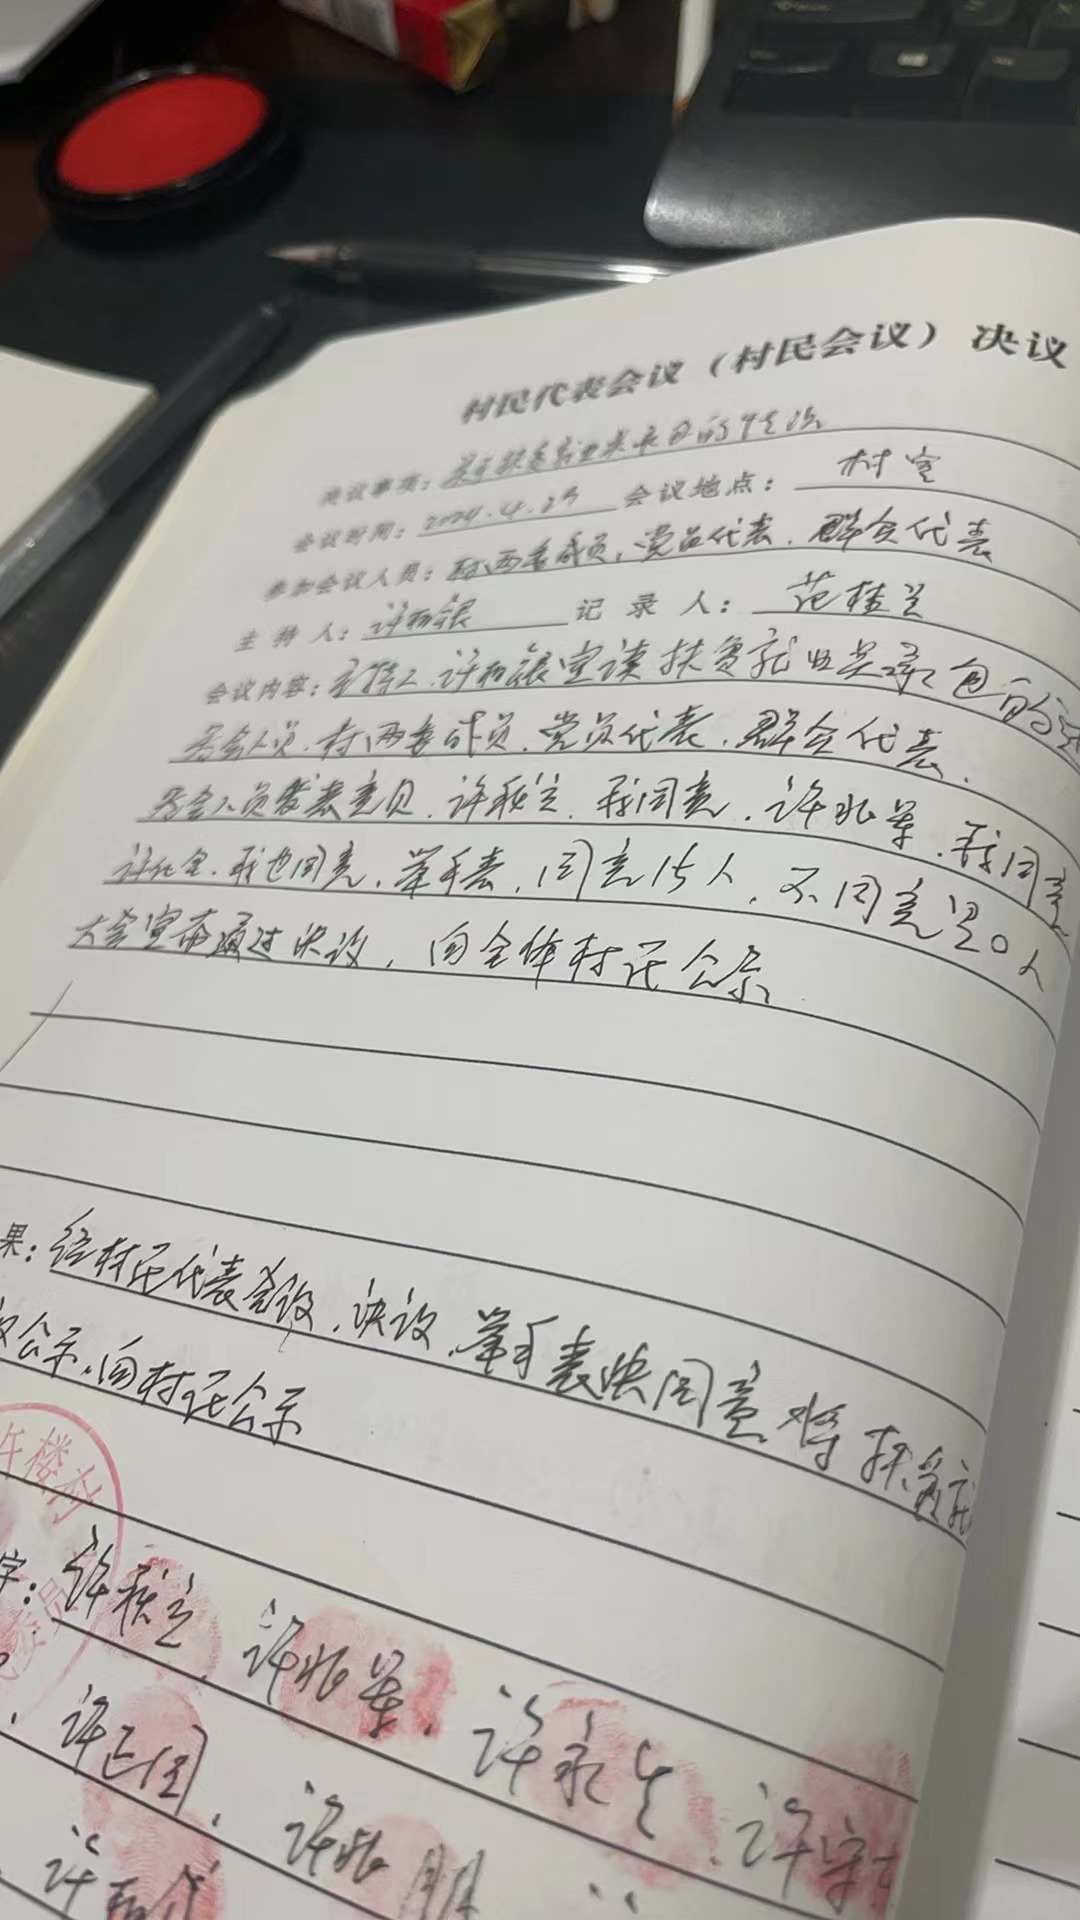 村民代表会议（村民会议）决议
决议事项：
会议时间：2024.4.23 会议地点：村室
参加会议人员：村两委成员，党员代表，群众代表
主持人：许 银 记录人：范桂兰
会议内容：主持人 许 银宣读扶贫就业 承包的
参会人员，村两委成员，党员代表，群众代表，
参会人员发表意见，许 立，我同意，许兆军，我同意
许 ，我也同意，举手表，同意15人，不同意见0人
大会宣布通过决议，向全体村民公示
果：经村民代表会议，决议，举手表决同意将扶贫就
公示，向村民公示
楼村
字：许 立，许兆军，许永生，许守
，许正 ，许兆朋
许